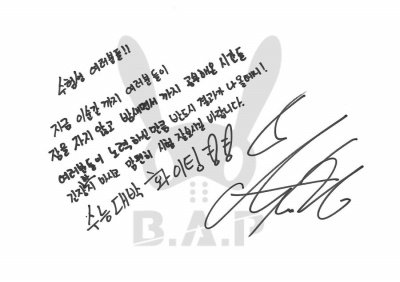 수험생 여러분들!!
지금 이순간 까지 여러분들이
잠을 자지 않고 밤새면서 까지 공부해온 시간들
여러분들이 노력 하신만큼 반드시 결과가 나올테니!
긴장하지 마시고 마무리 시험 잘보시길 바랍니다.
수능대박 화이팅
B.A.P